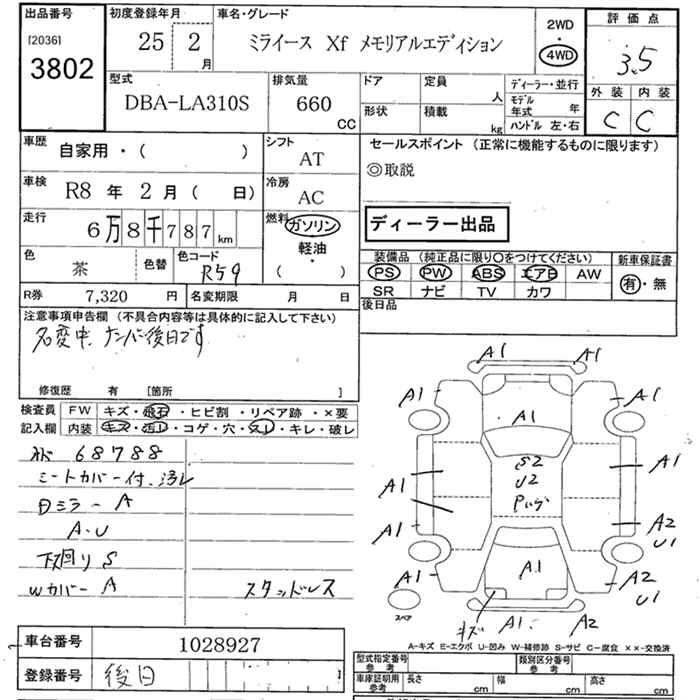 出品番号
[2036]
3802
初度登録年月
25 2
月
車名・グレード
ミライース Xf メモリアルエディション
2WD
・
4WD
評価点
3.5
外装 内装
C C
型式
DBA-LA310S
排気量
660
CC
ドア 定員 人
形状 積載 kg
ディーラー・並行
モデル年式 年
ハンドル 左・右
車歴
自家用・( )
シフト
AT
セールスポイント (正常に機能するものに限ります)
◎取説
車検
R8 年 2 月 ( 日)
冷房
AC
走行
6万8千787 km
燃料
ガソリン
軽油
・
( )
ディーラー出品
色
茶
色替
色コード
R59
装備品 (純正品に限り○をつけてください)
PS PW ABS エアB AW
SR ナビ TV カワ
新車保証書
有・無
R券 7,320 円
名変期限 月 日
後日品
注意事項申告欄 (不具合内容等は具体的に記入して下さい)
名変中、ナンバー後日です
修復歴 有 [箇所 ]
検査員記入欄
FW キズ・飛石・ヒビ割・リペア跡・×要
内装 キズ・汚レ・コゲ・穴・スレ・キレ・破レ
68788
シートカバー付、汚レ
ミラー A
A・U
下回り S
Wカバー A
スタッドレス
A1 A1
A1 A1
A1
S2
U2
A1 A1
A1 A2
U1
A1 A1 A2
U1
キズ A1 A2
スペア
A-キズ E-エクボ U-凹み W-補修跡 S-サビ C-腐食 ××-交換済
車台番号 1028927
登録番号 後日
型式指定番号 参考
類別区分番号 参考
車庫証明用 参考
長さ cm 幅 cm 高さ cm